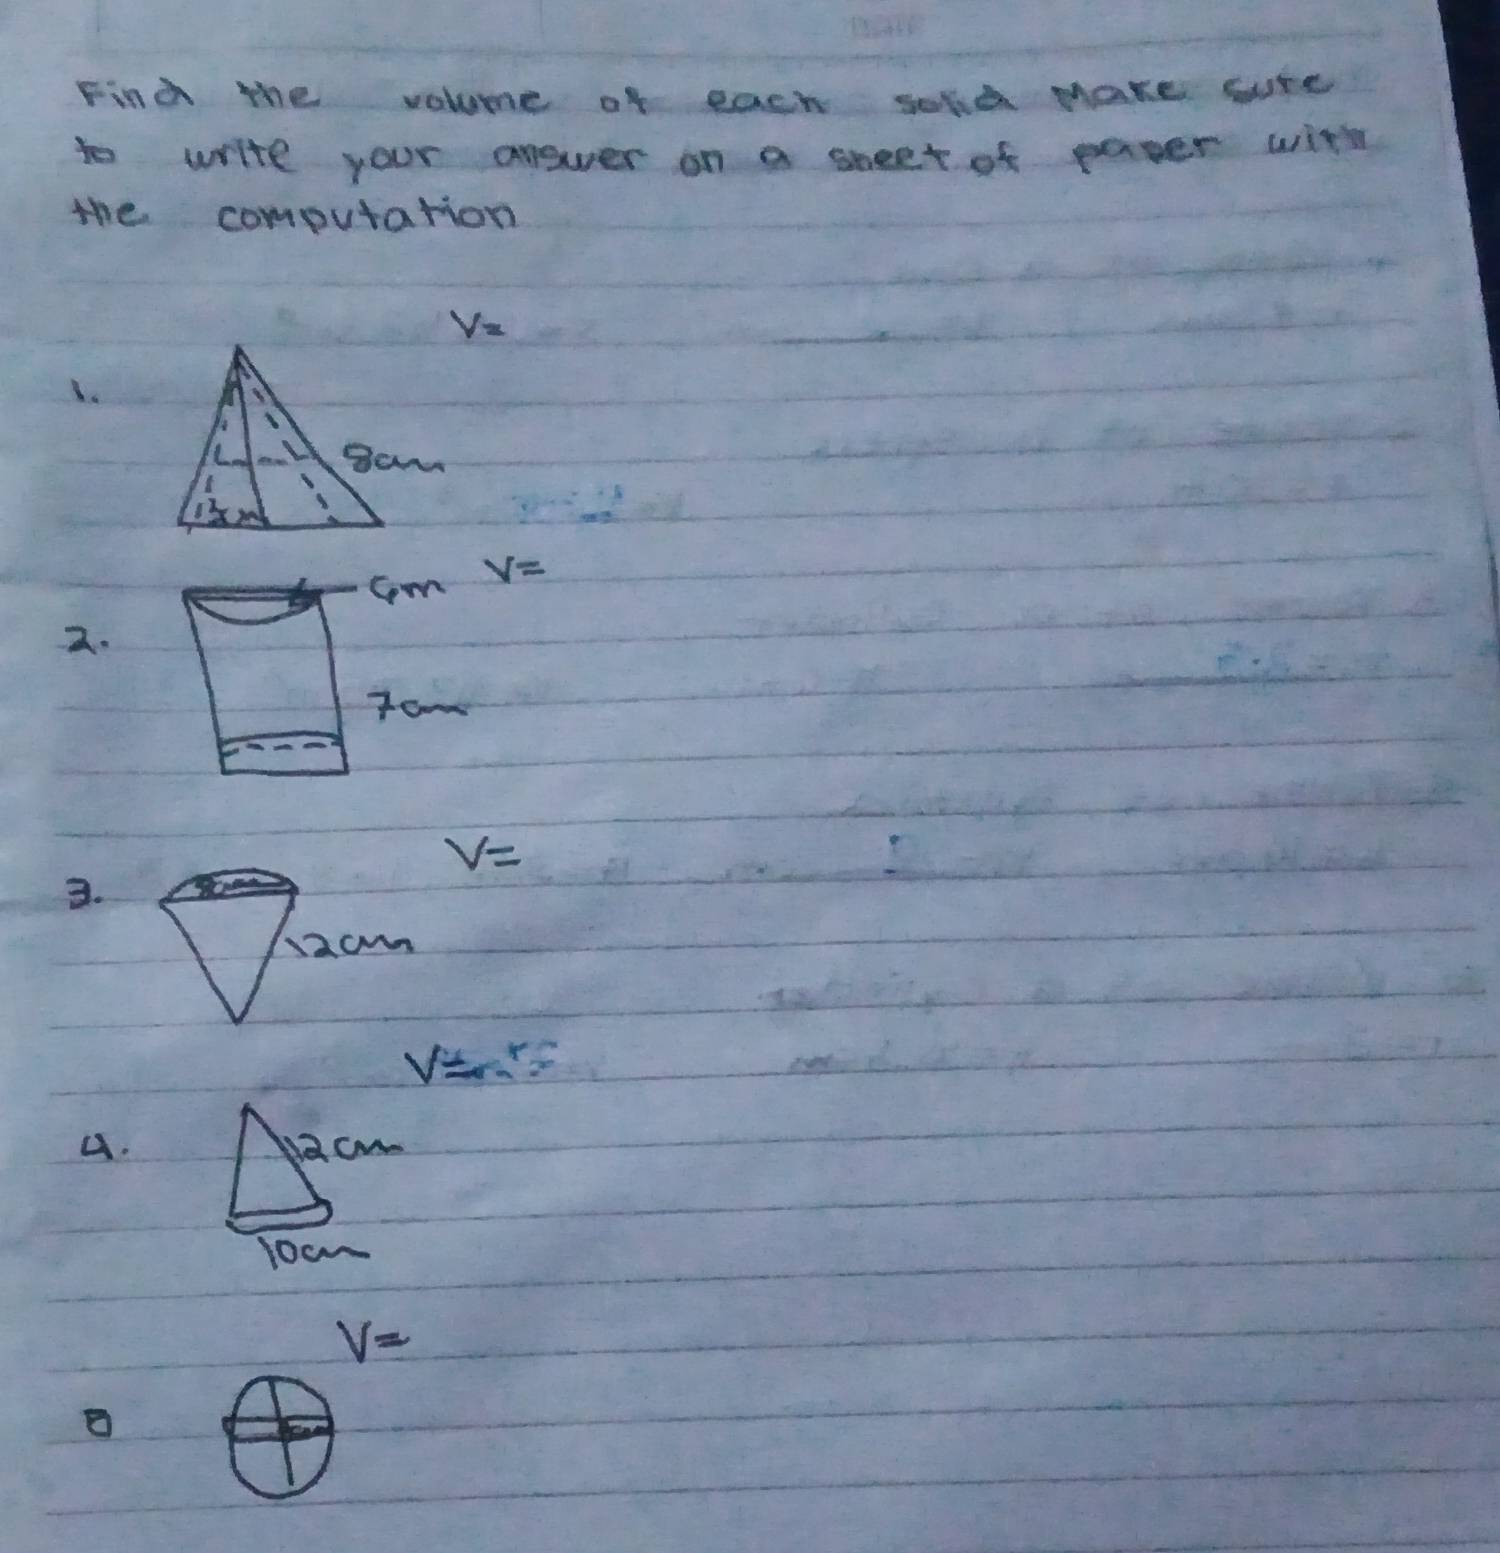 Find the volume of each solid Make sure
to write your answer on a sheet of paper with
the computation
V=
1.
8cm
V=
2.
7cm
V=
3.
12cm
V=
4.
12cm
10cm
V=